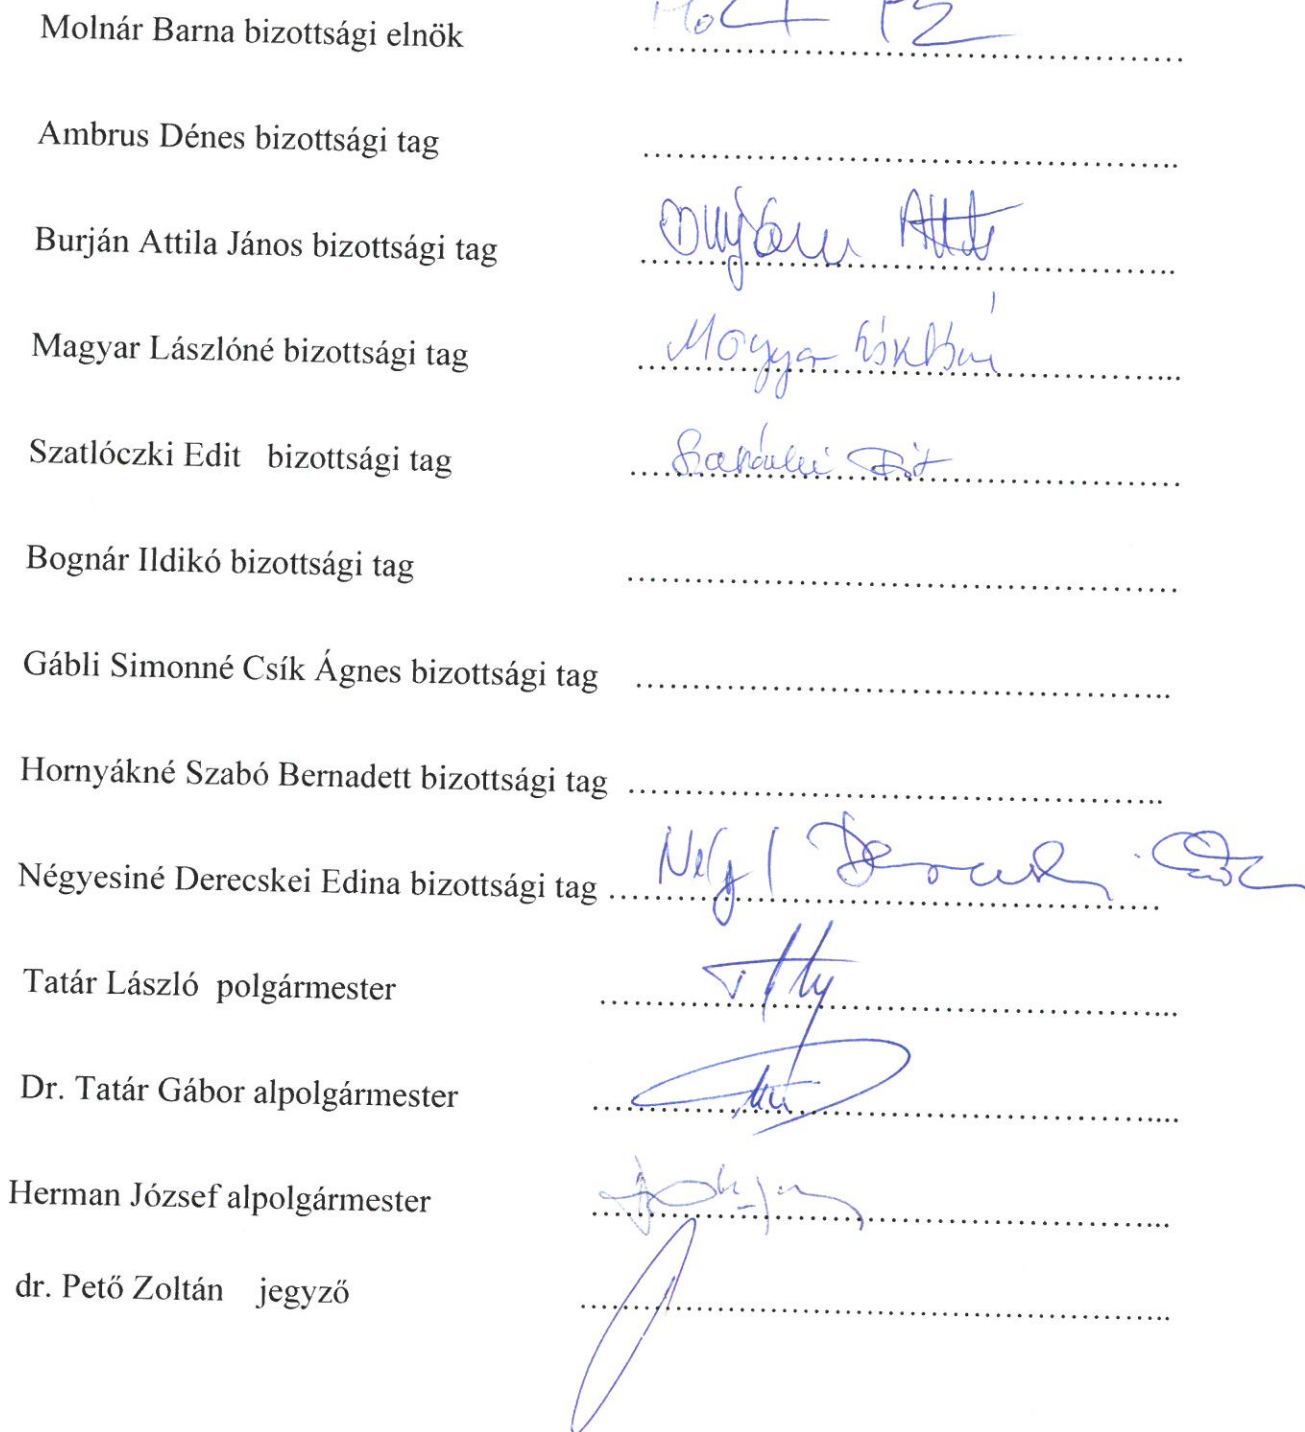 Molnár Barna bizottsági elnök ................................................
Ambrus Dénes bizottsági tag ................................................
Burján Attila János bizottsági tag Burján Attila
Magyar Lászlóné bizottsági tag Magyar Lászlóné
Szatlóczki Edit bizottsági tag Edit
Bognár Ildikó bizottsági tag ................................................
Gábli Simonné Csík Ágnes bizottsági tag ................................................
Hornyákné Szabó Bernadett bizottsági tag ................................................
Négyesiné Derecskei Edina bizottsági tag ................................................
Tatár László polgármester ................................................
Dr. Tatár Gábor alpolgármester ................................................
Herman József alpolgármester ................................................
dr. Pető Zoltán jegyző ................................................